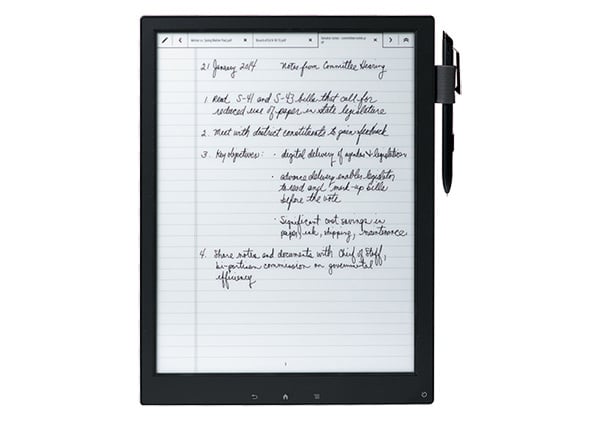 21 January 2014 Notes from Committee Hearing
1. Read S-41 and S-43 bills that call for
reduced use of paper in state legislature
2. Meet with district constituents to gain feedback
3. Key objectives: · digital delivery of agendas & legislation
· advance delivery enables legislator
to read and mark-up bills
before the vote
· Significant cost savings in
paper, ink, shipping, maintenance
4. Share notes and documents with Chief of Staff,
bi-partisan commission on governmental
efficiency
1